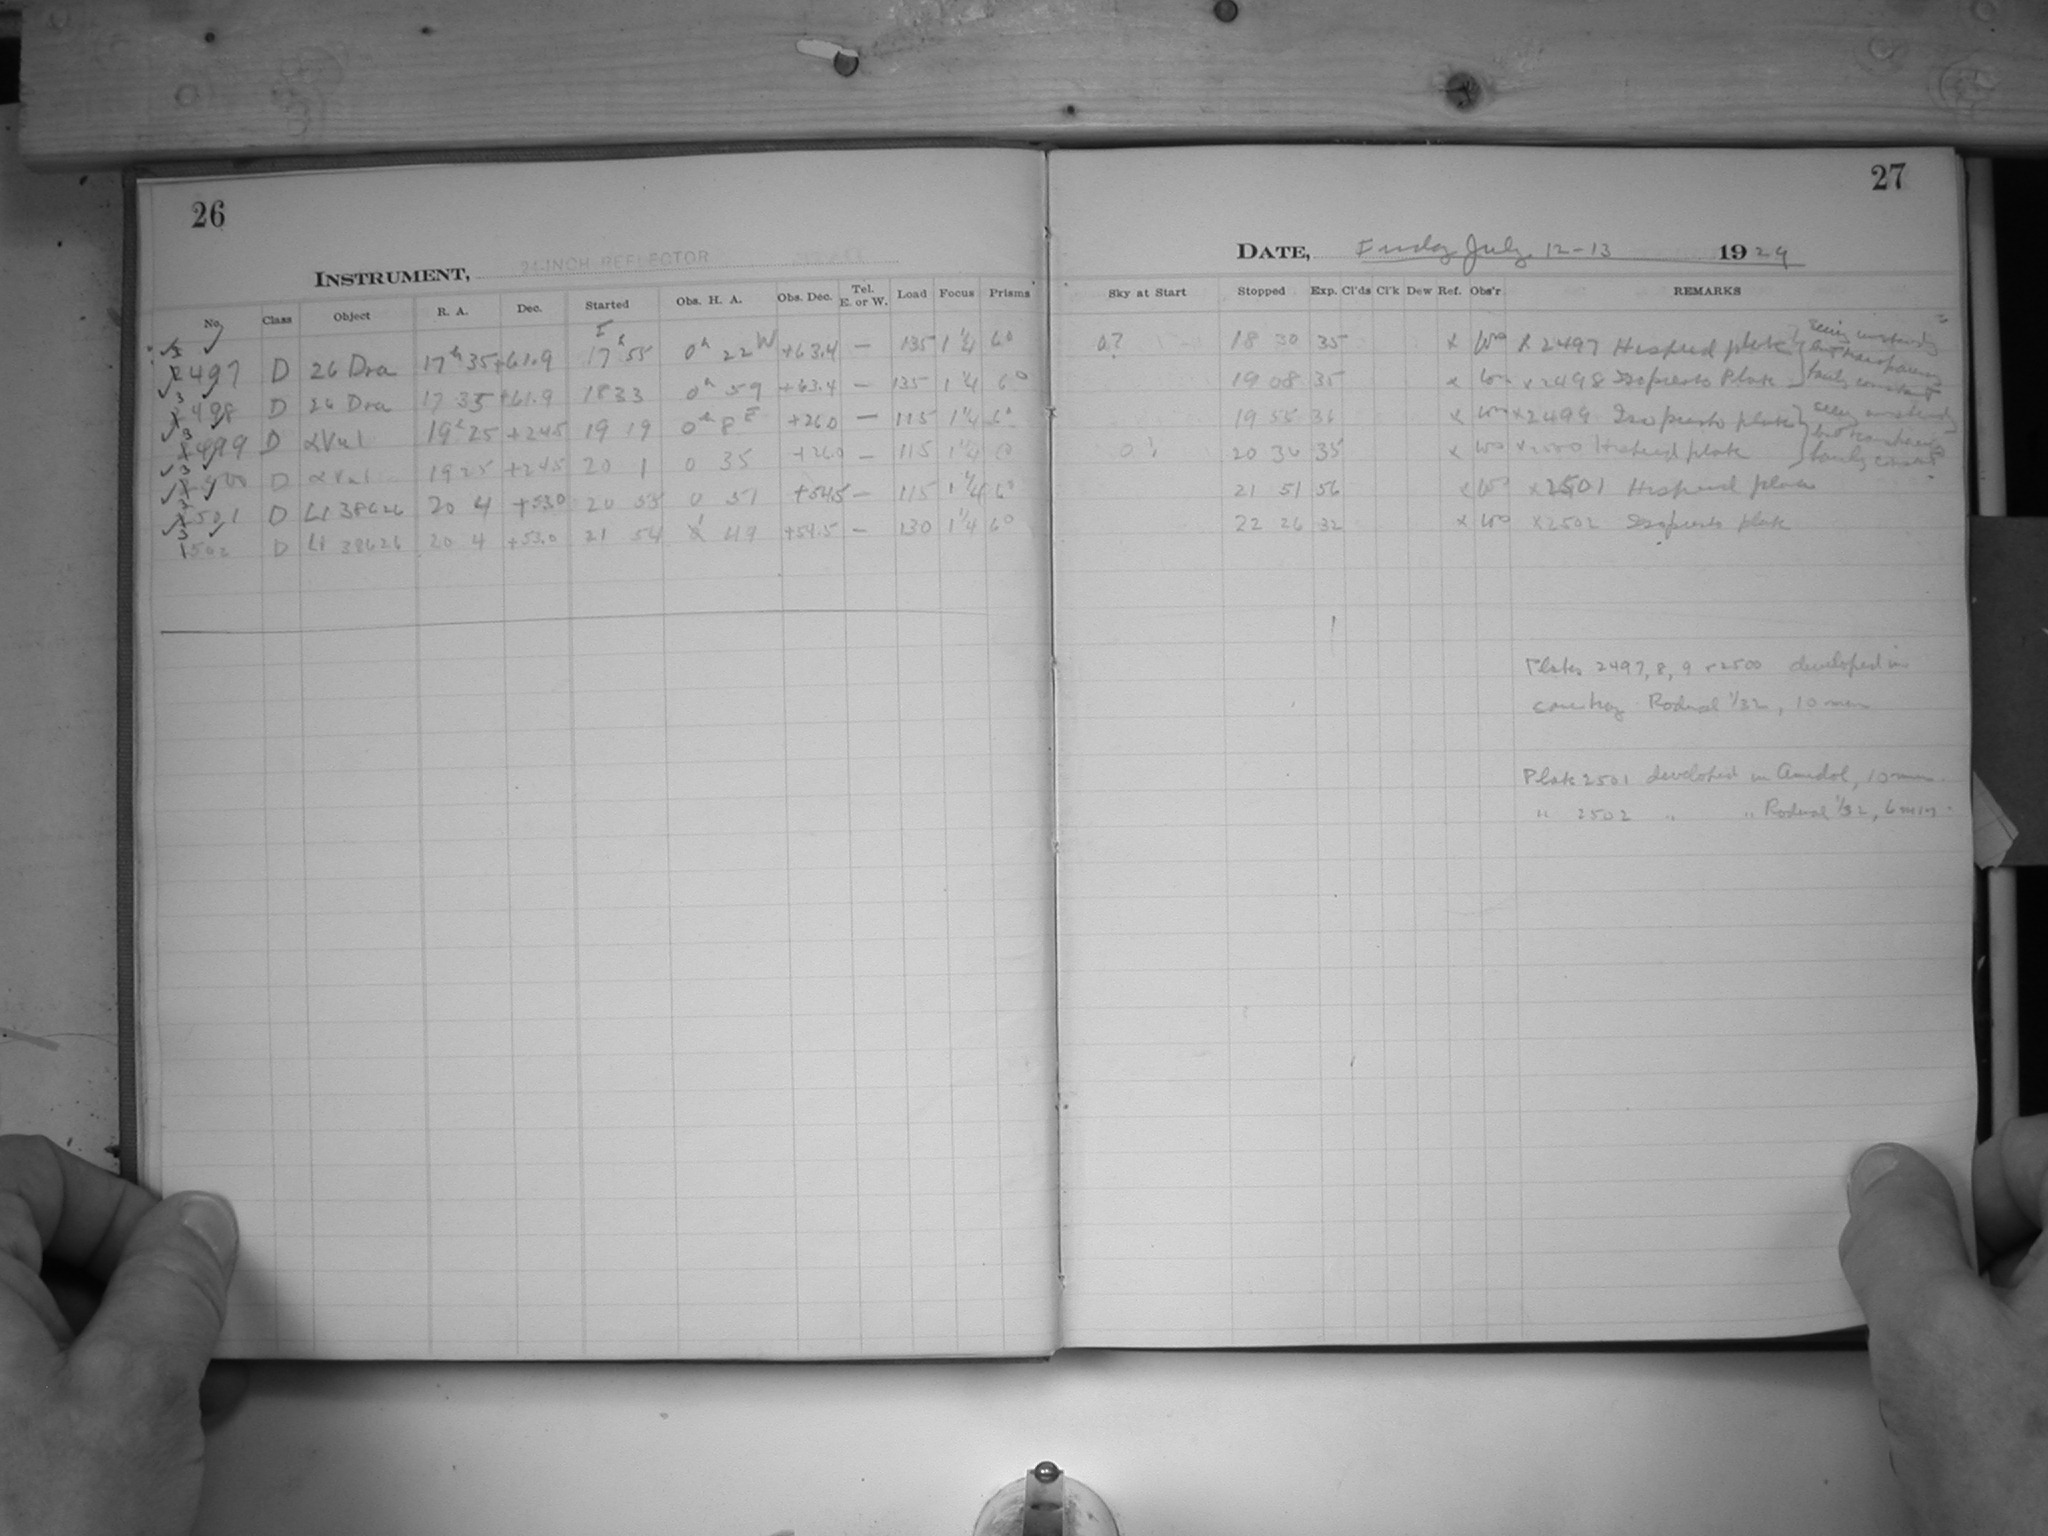 26
INSTRUMENT, 24-INCH REFLECTOR
No. Class Object R. A. Dec. Started Obs. H. A. Obs. Dec. Tel. E. or W. Load Focus Prisms
2497 D 26 Dra 17h 35 +61.9 17h 55 0h 22 W +63.4 — 135 1 1/4 6°
498 D 26 Dra 17 35 +61.9 18 33 0h 59 +63.4 — 135 1 1/4 6°
499 D α Vul 19h 25 +24.5 19 19 0h 8 E +26.0 — 115 1 1/4 6°
500 D α Vul 19 25 +24.5 20 1 0 35 +26.0 — 115 1 1/4
501 D Ll 38626 20 4 +53.0 20 55 0 51 +54.5 — 115 1 1/4 6°
502 D Ll 38626 20 4 +53.0 21 54 1 49 +54.5 — 130 1 1/4 6°
27
DATE, Friday July 12-13 1929
Sky at Start Stopped Exp. Cl'ds Cl'k Dew Ref. Obs'r REMARKS
0? 18 30 35 x Wo x 2497 Hispeed plate } seeing unsteady
but transparency
fairly constant
19 08 35 x Wo x 2498 Isopresto Plate
19 55 36 x Wo x 2499 Isopresto plate } seeing unsteady
but transparency
fairly constant
20 36 35 x Wo x 2500 Hispeed plate
21 51 56 x Wo x 2501 Hispeed plate
22 26 32 x Wo x 2502 Isopresto plate
Plates 2497, 8, 9 + 2500 developed in
Rodinal 1/32, 10 min
Plate 2501 developed in Amidol, 10 min.
" 2502 " " Rodinal 1/32, 6 min.